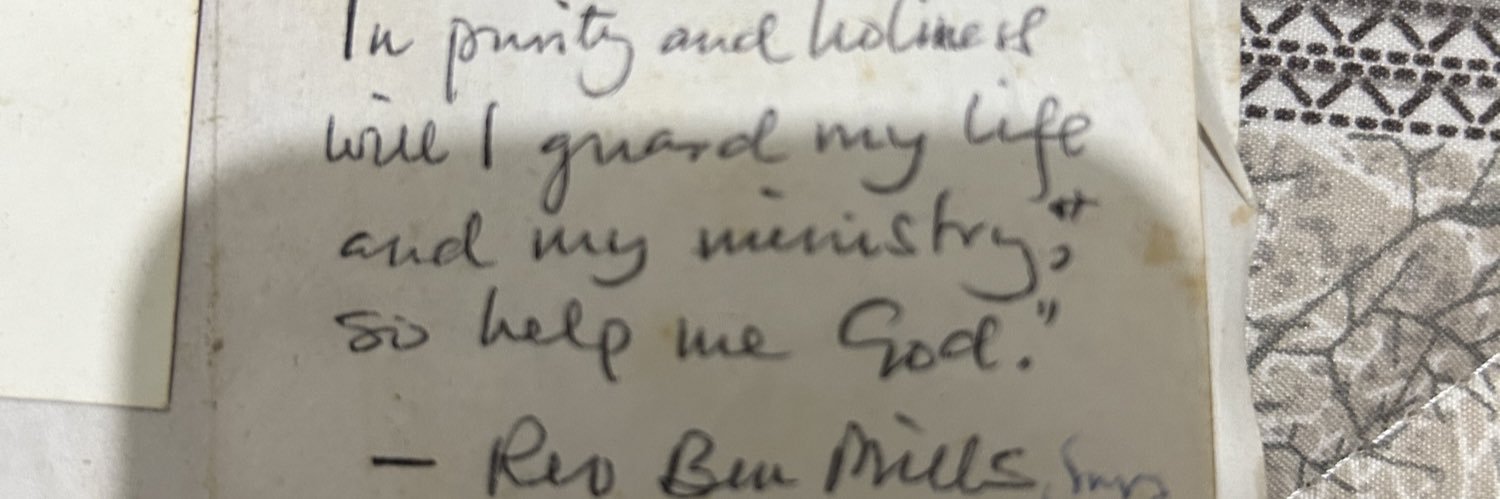 In purity and holiness
will I guard my life
and my ministry,"
so help me God."
— Rev Ben Mills,